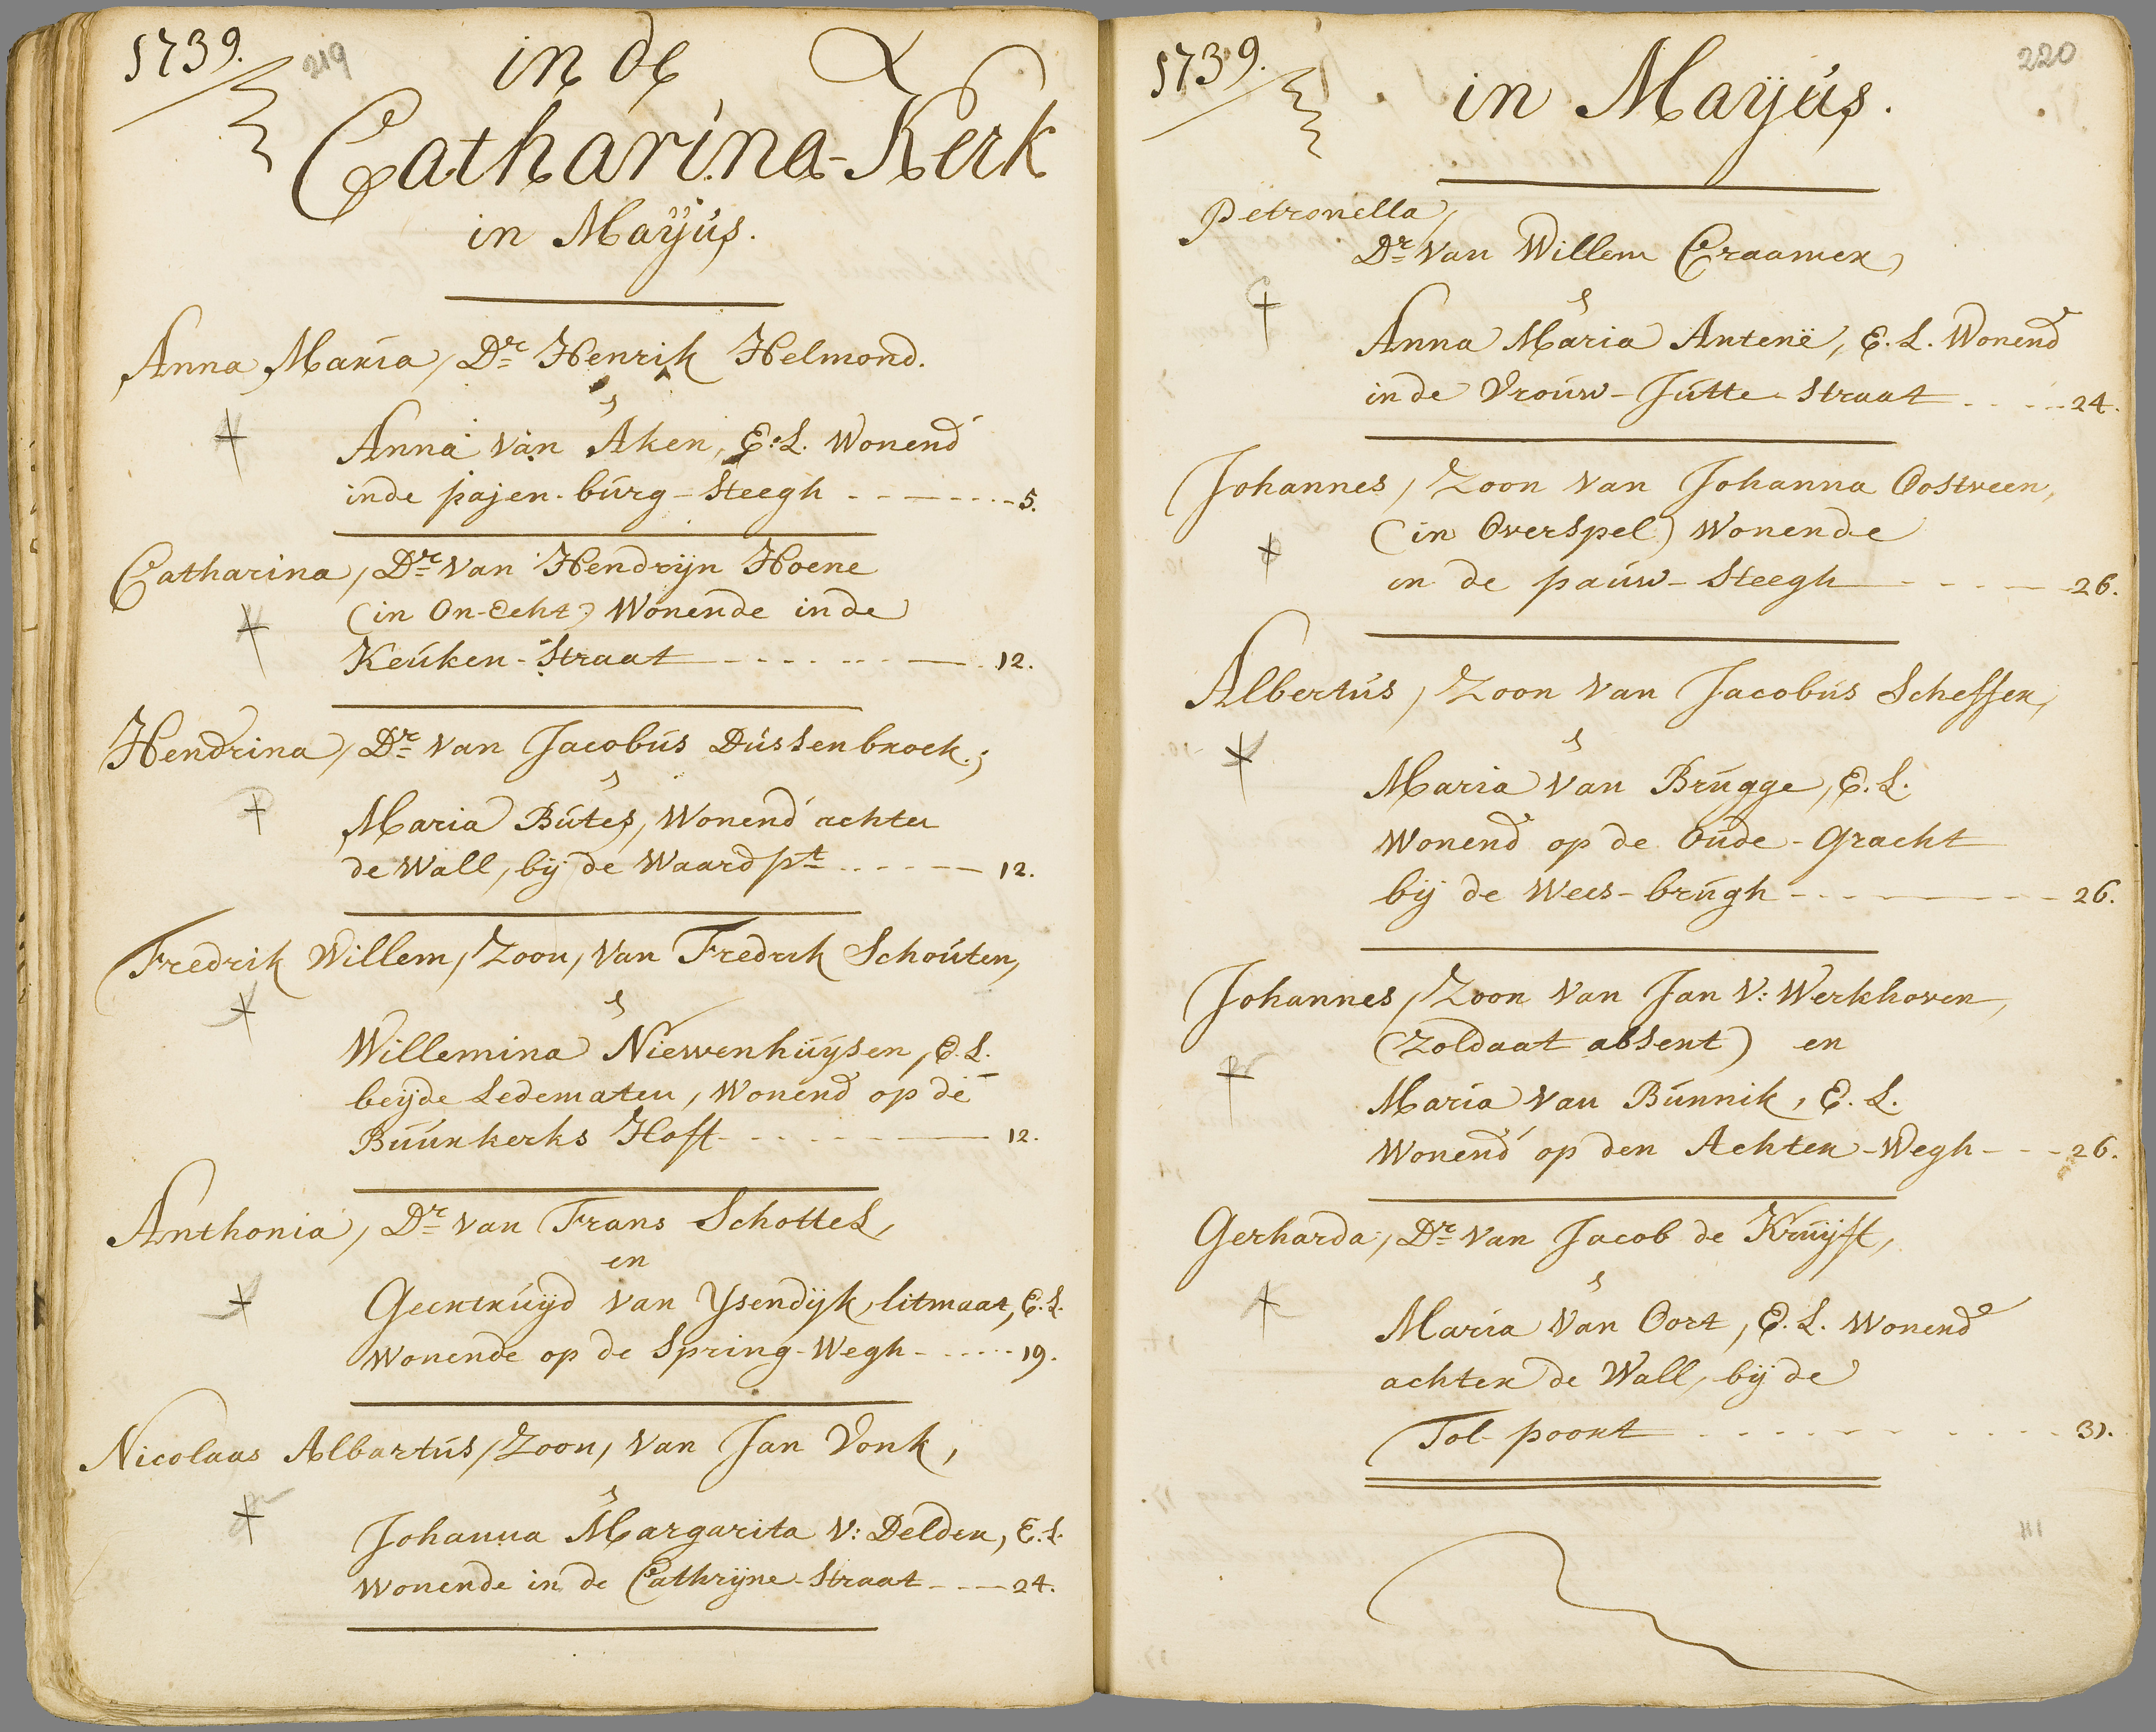 1739.
219
in de
Catharina-Kerk
in Mayüs.
Anna Maria, Dr Henrik Helmond.
Anna van Aken, E:L. Wonend
inde pajen-bürg-Steegh 5.
Catharina, Dr van Hendrijn Hoene
(in On-Echt) Wonende inde
Keüken-Straat 12.
Hendrina, Dr van Jacobüs Düssenbroek.;
Maria Bütes, Wonend achter
de Wall, bij de Waardpt 12.
Fredrik Willem, Zoon, van Fredrik Schoüten,
Willemina Niewenhüysen, E.L.
beijde Ledematen, Wonend op de
Büürkerks Hoff 12.
Anthonia, Dr van Frans Schottel,
en
Geertrüijd van Ysendijk, litmaat, E.L.
Wonende op de Spring-Wegh 19.
Nicolaas Albartüs, Zoon, van Jan Vonk,
Johanna Margarita V: Delden, E.L.
Wonende in de Cathrijne-Straat 24.
1739.
220
in Mayüs.
Petronella,
Dr van Willem Craamer,
Anna Maria Antenë, E.L. Wonend
inde Vroüw-Jütte-Straat 24.
Johannes, Zoon van Johanna Oostveen,
(in Overspel) Wonende
in de paüw-Steegh 26.
Albertüs, Zoon van Jacobüs Scheffer,
Maria van Brügge, E.L.
Wonend op de Oüde-Gracht
bij de Wees-brügh 26.
Johannes, Zoon van Jan V: Werkhoven,
(Zoldaat absent) en
Maria van Bünnik, E.L.
Wonend op den Achter-Wegh 26.
Gerharda, Dr van Jacob de Krüijff,
Maria van Oort, E.L. Wonend
achter de Wall, bij de
Tol-poort 31.
111